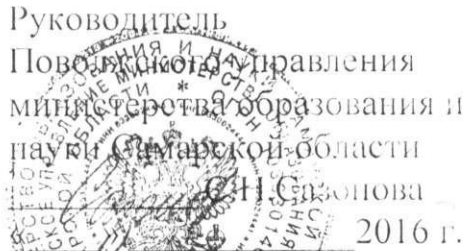 Руководитель
Поволжского управления
министерства образования и
науки Самарской области
С.Н.Сазонова
2016 г.